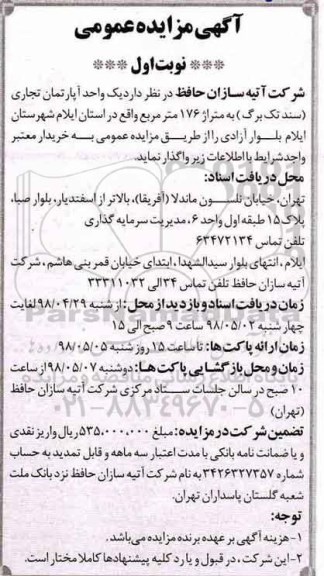 آگهی مزایده عمومی
*** نوبت اول ***
شرکت آتیه سازان حافظ در نظر دارد یک واحد آپارتمان تجاری
(سند تک برگ) به متراژ ۱۷۶ متر مربع واقع در استان ایلام شهرستان
ایلام بلوار آزادی را از طریق مزایده عمومی به خریدار معتبر
واجد شرایط با اطلاعات زیر واگذار نماید.
محل دریافت اسناد:
تهران، خیابان نلسون ماندلا (آفریقا)، بالاتر از اسفندیار، بلوار صبا،
پلاک ۱۵ طبقه اول واحد ۶، مدیریت سرمایه گذاری
تلفن تماس ۶۳۴۷۲۱۳۴
ایلام، انتهای بلوار سیدالشهدا، ابتدای خیابان قمر بنی هاشم، شرکت
آتیه سازان حافظ تلفن تماس ۳۴ الی ۳۳۳۱۱۰۳۲
زمان دریافت اسناد و بازدید از محل: از شنبه ۹۸/۰۴/۲۹ لغایت
چهار شنبه ۹۸/۰۵/۰۲ ساعت ۹ صبح الی ۱۵
زمان ارائه پاکت ها: تا ساعت ۱۵ روز شنبه ۹۸/۰۵/۰۵
زمان و محل بازگشایی پاکت ها: دوشنبه ۹۸/۰۵/۰۷ از ساعت
۱۰ صبح در سالن جلسات ستاد مرکزی شرکت آتیه سازان حافظ
(تهران)
۰۲۱-۸۸۳۴۹۶۷۰-۵
تضمین شرکت در مزایده: مبلغ ۵۳۵,۰۰۰,۰۰۰ ریال واریز نقدی
و یا ضمانت نامه بانکی با مدت اعتبار سه ماهه و قابل تمدید به حساب
شماره ۳۴۲۶۳۲۷۳۵۷ به نام شرکت آتیه سازان حافظ نزد بانک ملت
شعبه گلستان پاسداران تهران.
توجه:
۱- هزینه آگهی بر عهده برنده مزایده می‌باشد.
۲- این شرکت، در قبول و یا رد کلیه پیشنهادها کاملا مختار است.